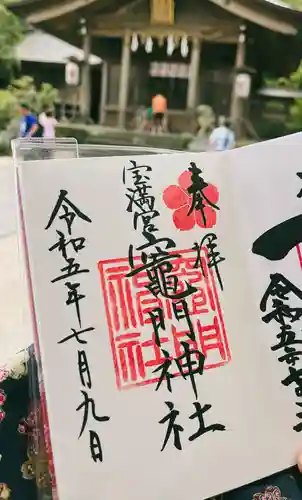 令和五
奉拝
宝満宮
竈門神社
令和五年七月九日